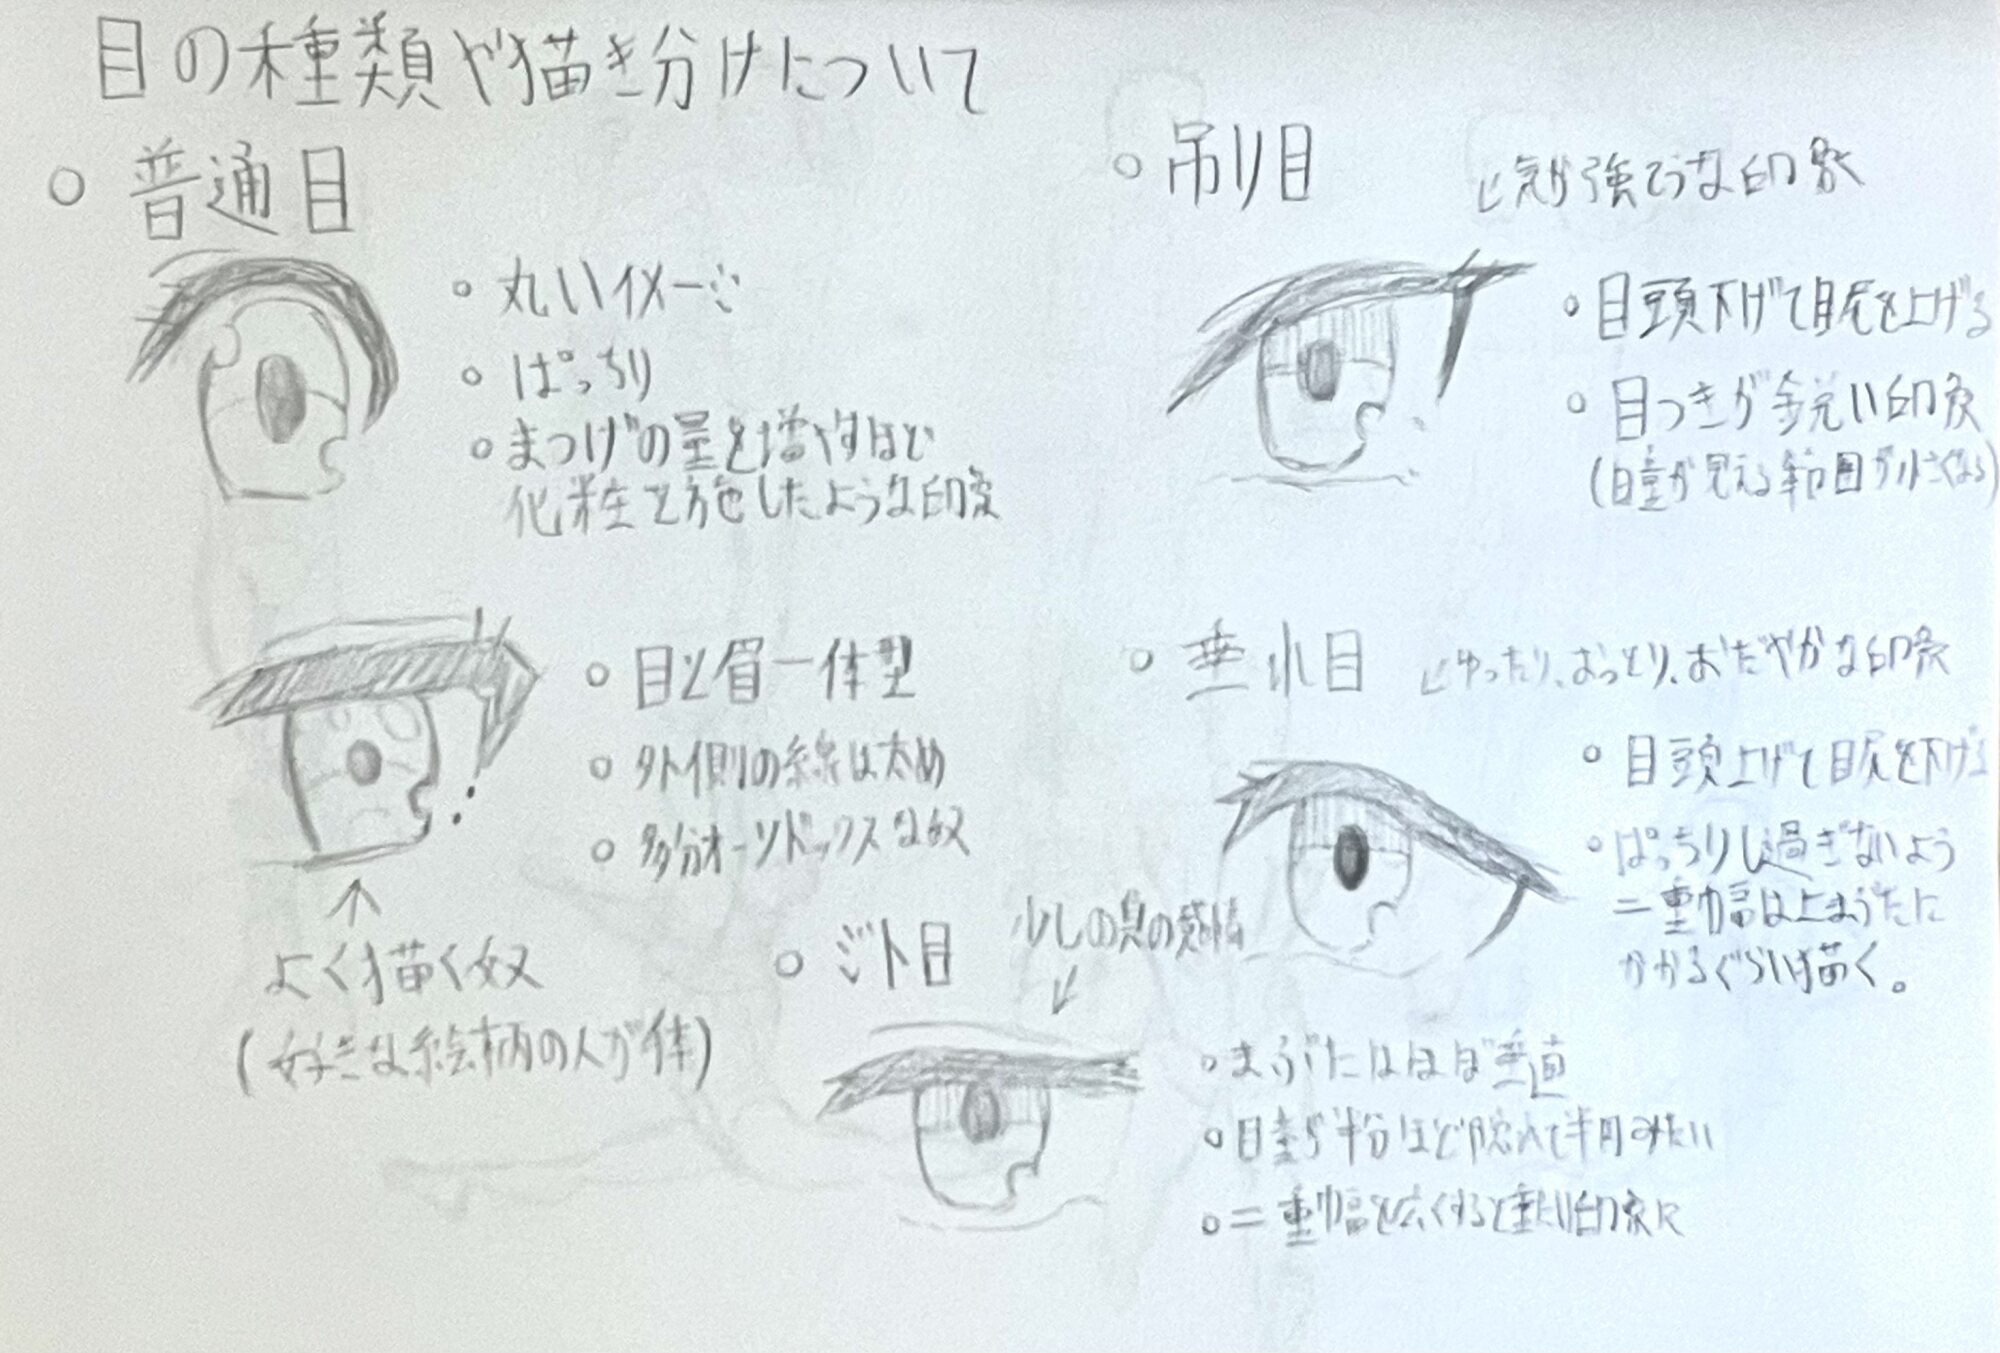 目の種類や描き分けについて
○ 普通目
○ 丸いイメージ
○ ぱっちり
○ まつげの量を増やすほど
化粧を施したような印象
○ 目と眉一体型
○ 外側の線は太め
○ 多分オーソドックスな奴
↑
よく描く奴
(好きな絵柄の人が体)
○ 吊り目
↙気が強そうな印象
○ 目頭下げて目尻を上げる
○ 目つきが鋭い印象
(瞳が見える範囲が小さくなる)
○ 垂れ目
↙ゆったり、おっとり、おだやかな印象
○ 目頭上げて目尻を下げる
○ ぱっちりし過ぎないよう
二重幅は上まぶたに
かかるぐらい描く。
○ ジト目
少しの
↙
○ まぶたはほぼ垂直
○ 瞳が半分ほど隠れて半月みたい
○ 二重幅を広くすると重たい印象に